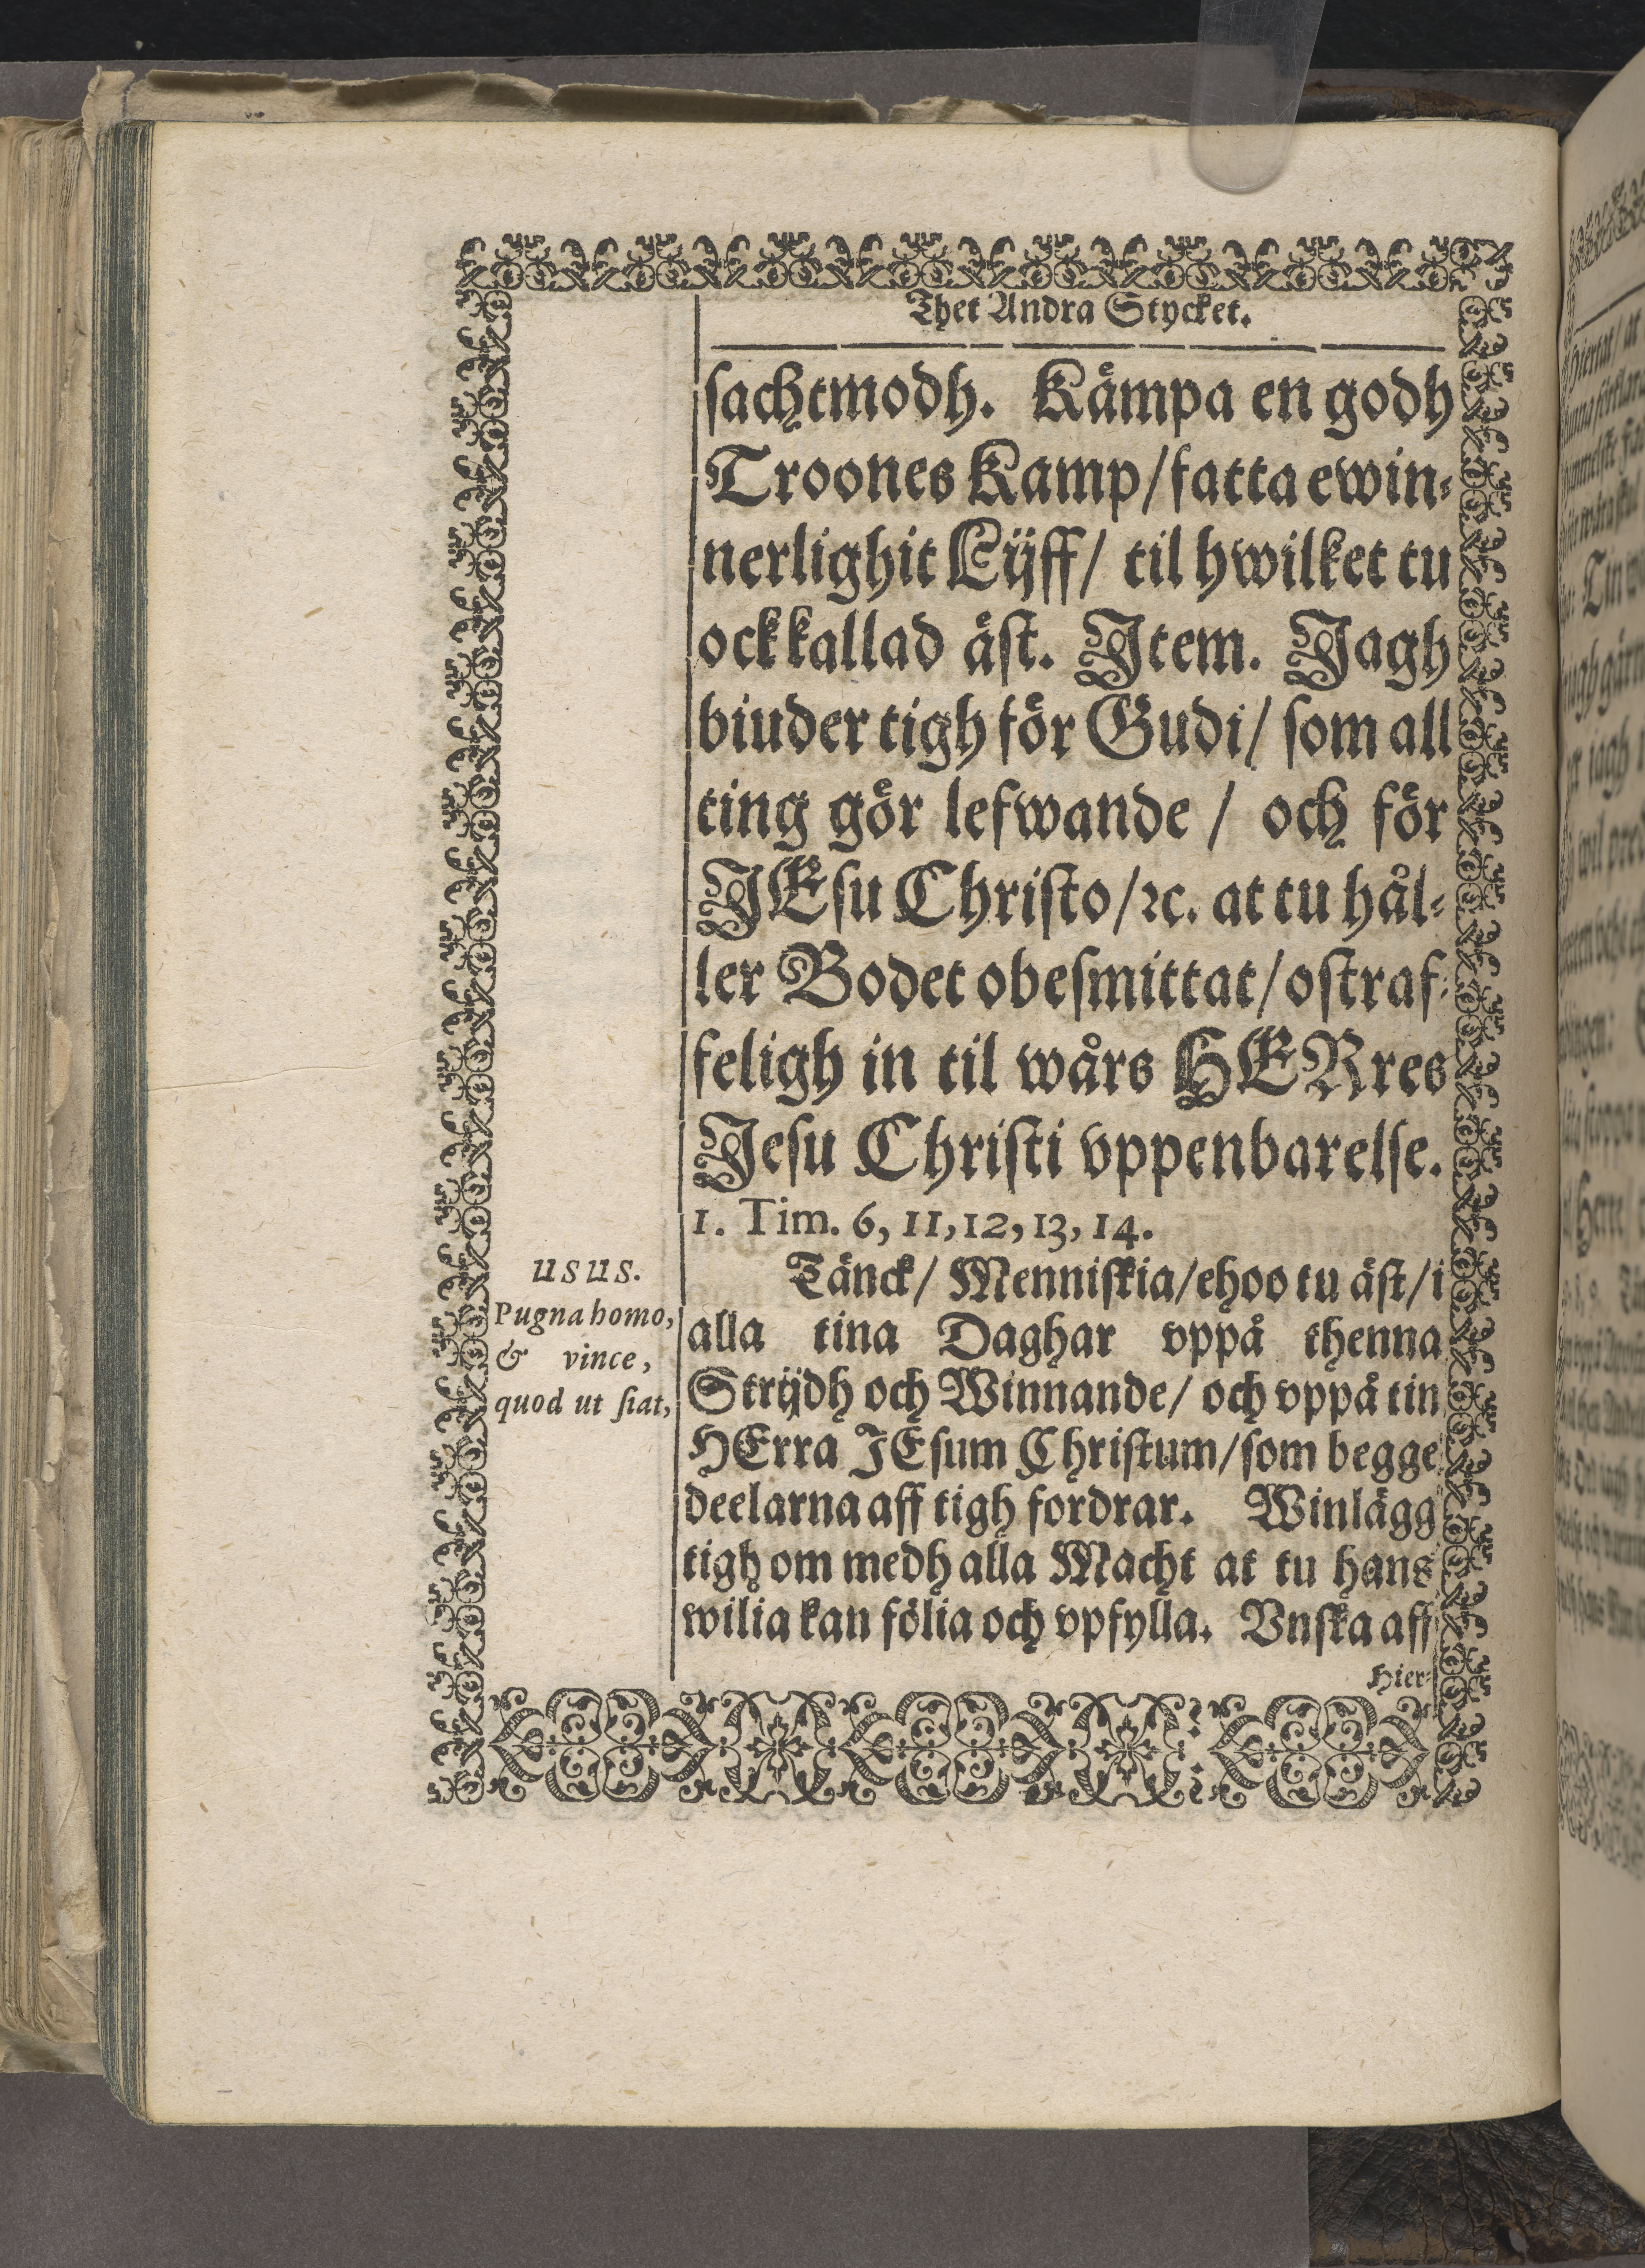 Thet Andra Stycket.
sachtmodh. Kämpa en godh
Troones Kamp/fatta ewin-
nerlighit Lijff/ til hwilket tu
ock kallad äst. Item. Jagh
biuder tigh för Gudi/ som all
ting gör lefwande / och för
JEsu Christo/ꝛc. at tu hål-
ler Bodet obesmittat/ostraf-
feligh in til wårs HERres
Jesu Christi vppenbarelse.
1. Tim. 6, 11, 12, 13, 14.
usus.
Pugna homo,
& vince,
quod ut fiat,
Tänck/ Menniskia/ehoo tu äst/i
alla tina Daghar vppå thenna
Strijdh och Winnande/ och vppå tin
HErra JEsum Christum/som begge
deelarna aff tigh fordrar. Winlägg
tigh om medh alla Macht at tu hans
wilia kan fölia och vpfylla. Vnska aff
Hier-